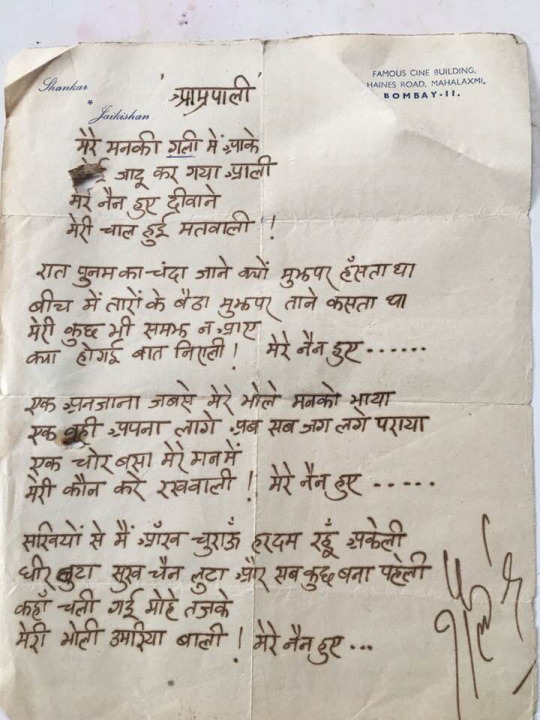 Shankar
*
Jaikishan
'आम्रपाली'
FAMOUS CINE BUILDING,
HAINES ROAD, MAHALAXMI,
BOMBAY-11.
मेरे मनकी गली में आके
जादू कर गया आली
मेरे नैन हुए दीवाने
मेरी चाल हुई मतवाली !!
रात पुनम का चंदा जाने क्यों मुझपर हँसता था
बीच में तारों के बैठा मुझपर ताने कसता था
मेरी कुछ भी समझ न आए
क्या होगई बात निराली ! मेरे नैन हुए ......
एक अनजाना जबसे मेरे भोले मनको भाया
एक वही अपना लागे अब सब जग लगे पराया
एक चोर बसा मेरे मनमें
मेरी कौन करे रखवाली ! मेरे नैन हुए .....
सखियों से मैं आँख चुराऊँ हरदम रहूँ अकेली
धीर लुटा सुख चैन लुटा और सब कुछ बना पहेली
कहाँ चली गई मोहे तजके
मेरी भोली उमरिया बाली ! मेरे नैन हुए ...